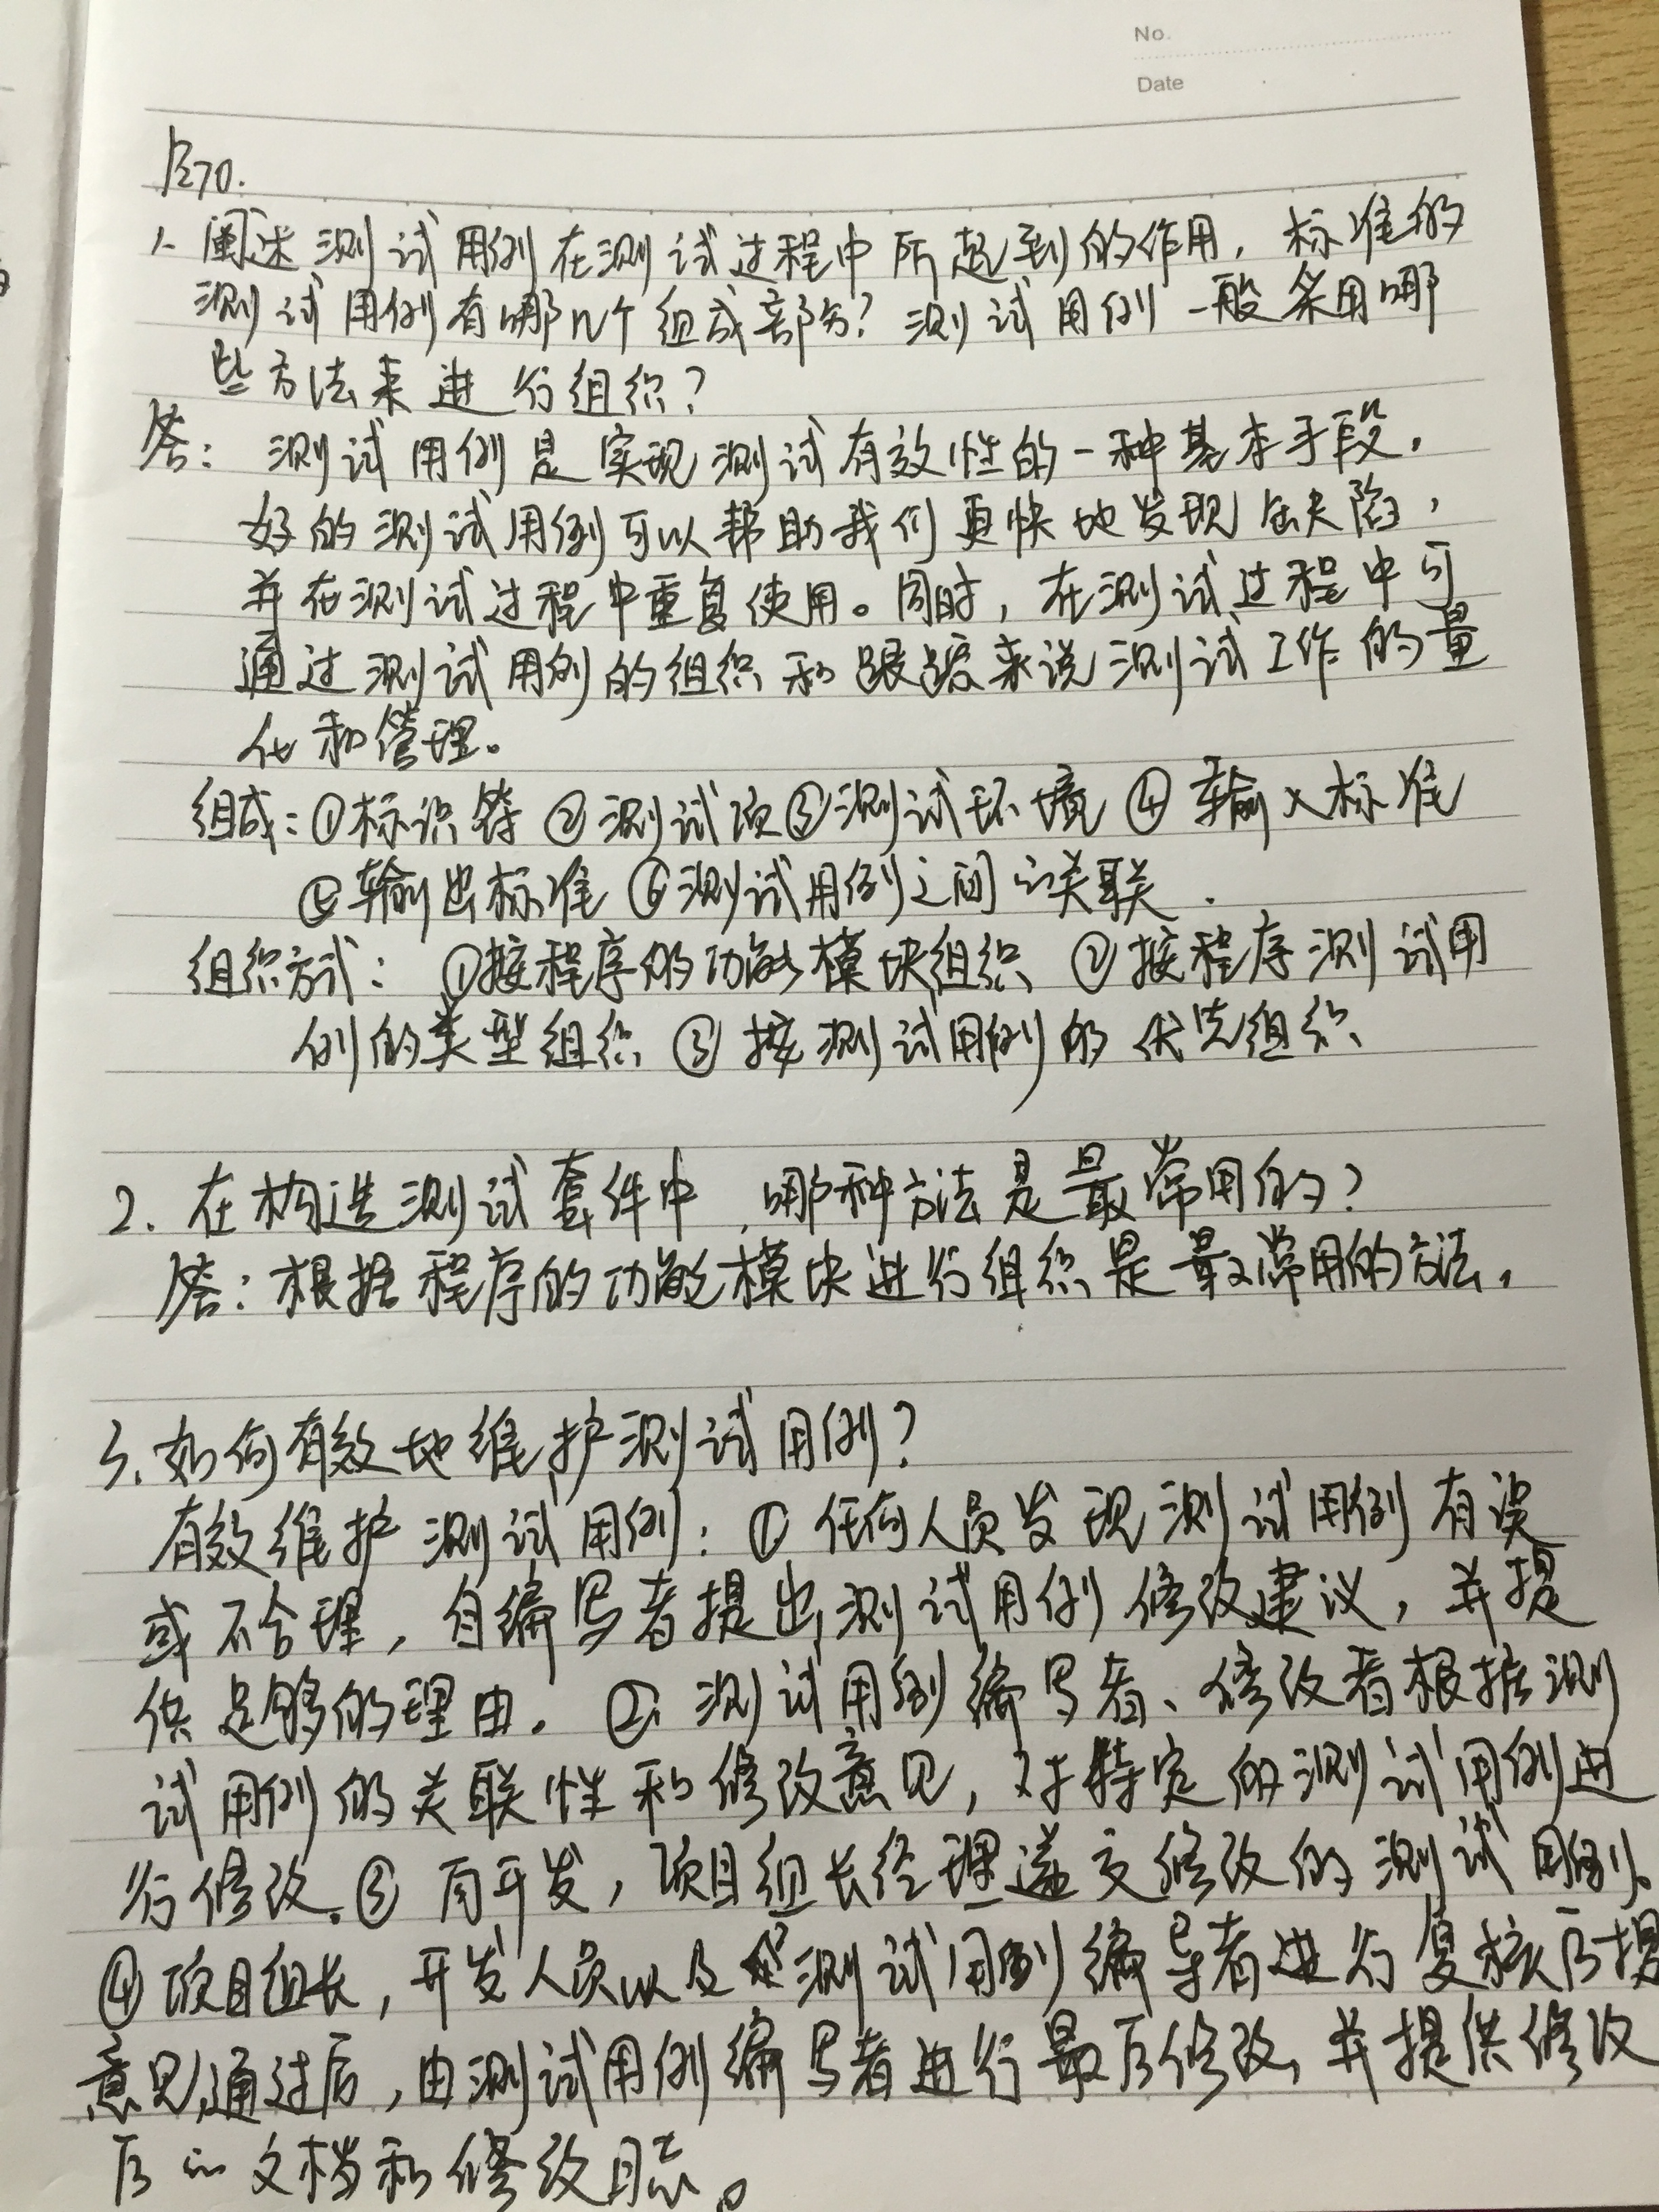 No.
Date
P270.
1. 阐述测试用例在测试过程中所起到的作用，标准的
测试用例有哪几个组成部分？测试用例一般采用哪
些方法来进行组织？
答：测试用例是实现测试有效性的一种基本手段，
好的测试用例可以帮助我们更快地发现缺陷，
并在测试过程中重复使用。同时，在测试过程中可
通过测试用例的组织和跟踪来说测试工作的量
化和管理。
组成：①标识符 ②测试项 ③测试环境 ④ 输入标准
⑤输出标准 ⑥测试用例之间的关联．
组织方式：①按程序的功能模块组织 ②按程序测试用
例的类型组织 ③按测试用例的优先组织
2. 在构造测试套件中，哪种方法是最常用的？
答：根据程序的功能模块进行组织是最常用的方法，
3. 如何有效地维护测试用例？
有效维护测试用例：① 任何人员发现测试用例有误
或不合理，向编写者提出测试用例修改建议，并提
供足够的理由。②测试用例编写者、修改者根据测
试用例的关联性和修改意见，对特定的测试用例进
行修改。③ 向开发，项目组长经理递交修改的测试用例。
④项目组长，开发人员以及测试用例编写者进行复核后提
意见通过后，由测试用例编写者进行最后修改，并提供修改
后的文档和修改日志。